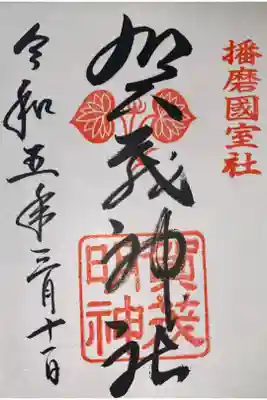 播磨國室社
加茂神社
賀茂
明神
令和五年三月十一日